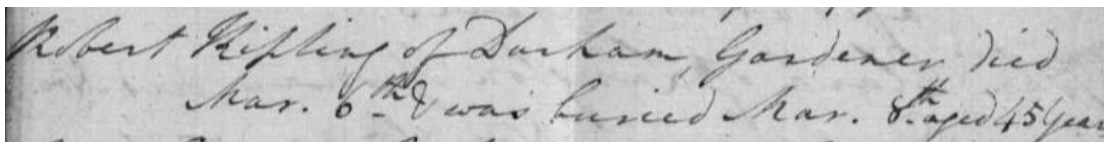 Robert Kipling of Durham, Gardener died
Mar. 6th & was buried Mar. 8th aged 45 Years